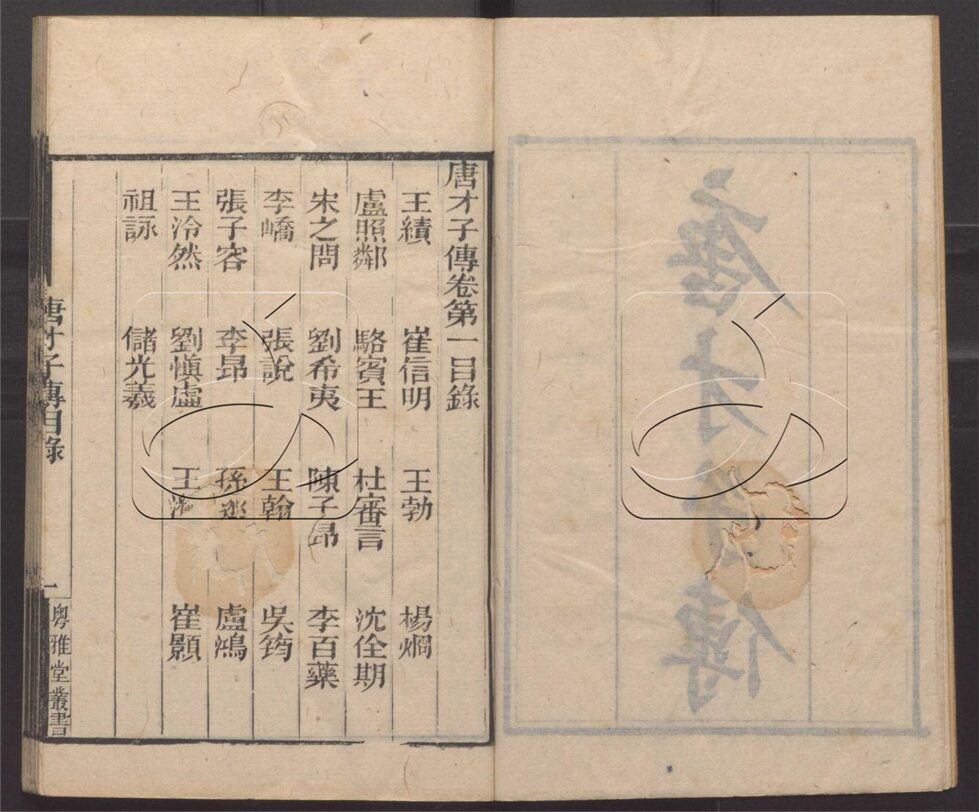 唐才子傳
唐才子傳卷第一目錄
王績 崔信明 王勃 楊烱
盧照鄰 駱賓王 杜審言 沈佺期
宋之問 劉希夷 陳子昂 李百藥
李嶠 張說 王翰 吳筠
張子容 李昂 孫逖 盧鴻
王泠然 劉愼虛 王灣 崔顥
祖詠 儲光羲
唐才子傳目錄 一 粵雅堂叢書